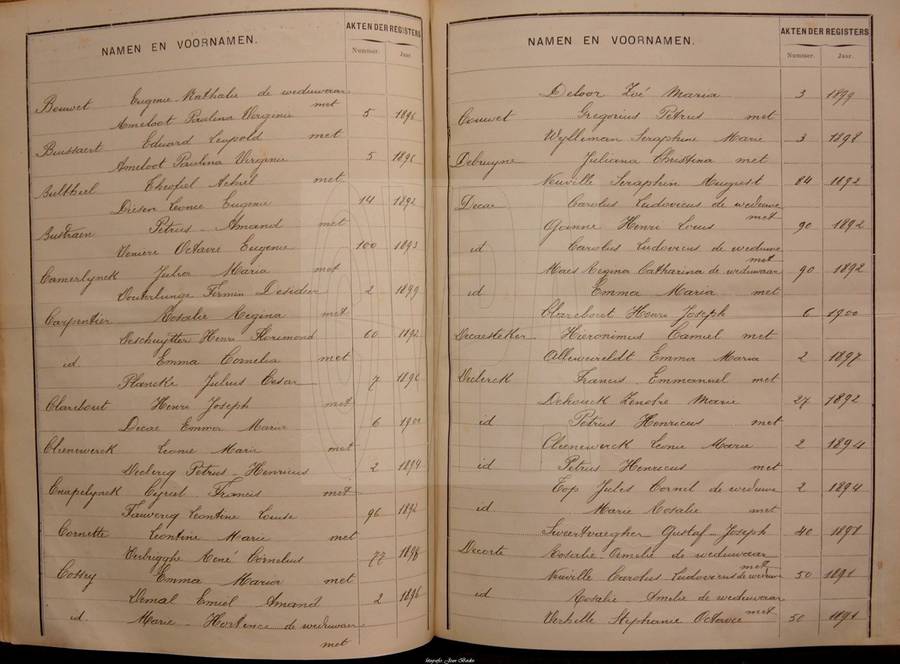 NAMEN EN VOORNAMEN.
AKTEN DER REGISTERS
Nummer. Jaar.
Bouwet Eugenie Mathalie de weduwaar
met
Ameloot Paulina Virginie 5 1896
Bussaert Eduard Leopold met
Ameloot Paulina Virginie 5 1896
Bultheel Theofiel Achiel met
Driesen Leonie Eugenie 14 1892
Bustraen Petrus Amand met
Veniere Octavie Eugenie 100 1893
Camerlynck Julia Maria met
Oouterlinge Firmin Desider 2 1899
Carpentier Rosalie Regina met
Deschuytter Henri Floremond 60 1892
id. Emma Cornelia met
Plancke Julius Cesar 7 1896
Clarebout Henri Joseph met
Decae Emma Maria 6 1900
Cleenewerck Leonie Marie met
Declercq Petrus Henricus 2 1894
Cnapelynck Cyriel Francis met
Fauvercq Leontine Louise 96 1892
Cornette Leontine Marie met
Verbrigghe René Cornelius 77 1896
Cossey Emma Maria met
Demal Emiel Amand 2 1896
id. Marie Hortence de weduwaar
met
NAMEN EN VOORNAMEN.
AKTEN DER REGISTERS
Nummer. Jaar.
Deloor Zoé Maria 3 1899
Couwet Gregorius Petrus met
Wylleman Seraphine Marie 3 1898
Debruyne Juliana Christina met
Neuville Seraphin August 84 1892
Decae Carolus Ludovicus de weduwe
met
Gjonne Henri Louis 90 1892
id Carolus Ludovicus de weduwe
met
Maes Regina Catharina de weduwaar 90 1892
id Emma Maria met
Clarebout Henri Joseph 6 1900
Decaestekker Hieronimus Camiel met
Allewereldt Emma Maria 2 1897
Declerck Francis Emmanuel met
Dehouck Zenobie Marie 27 1892
id Petrus Henricus met
Cleenewerck Leonie Marie 2 1894
id Petrus Henricus met
Top Jules Cornel de weduwe 2 1894
id Marie Rosalie met
Swaertvaegher Gustaf Joseph 40 1898
Decorte Rosalie Amilie de weduwaar
met
Neuville Carolus Ludovicus de weduwe 50 1891
id Rosalie Amelie de weduwaar
met
Verhille Stephanie Octavie 50 1891